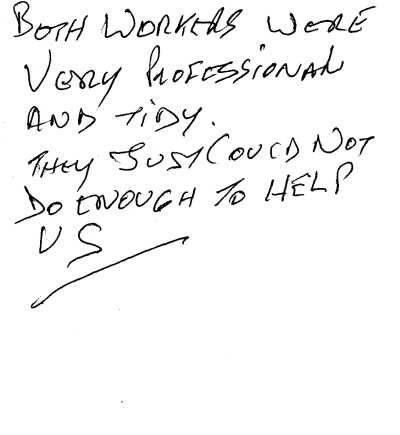 BOTH WORKERS WERE
VERY PROFESSIONAL
AND TIDY.
THEY JUST COULD NOT
DO ENOUGH TO HELP
US